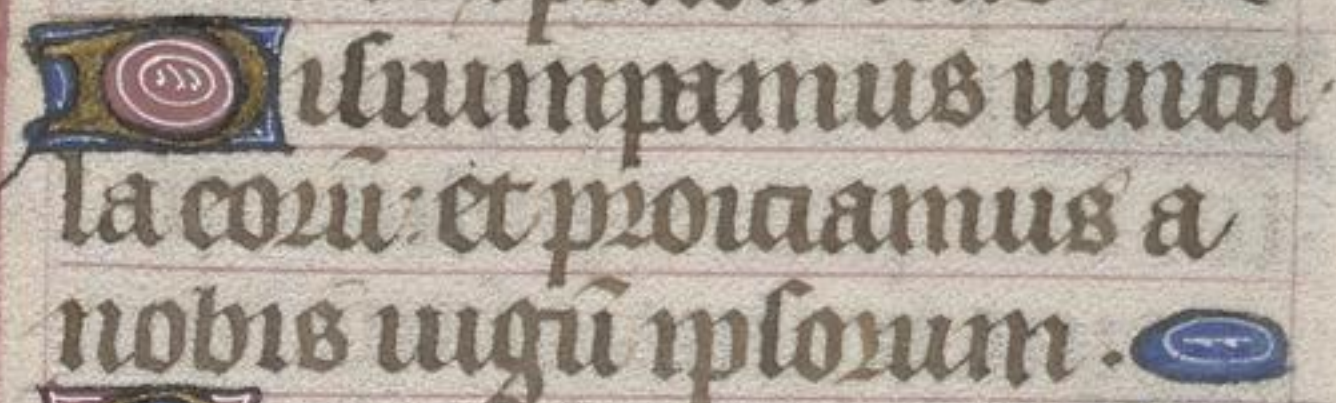 Disrumpamus uincu
la eorū: et proiciamus a
nobis iugū ipsorum.